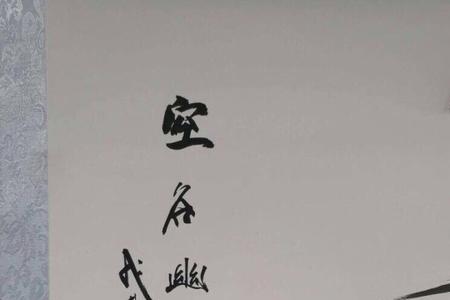 空谷幽